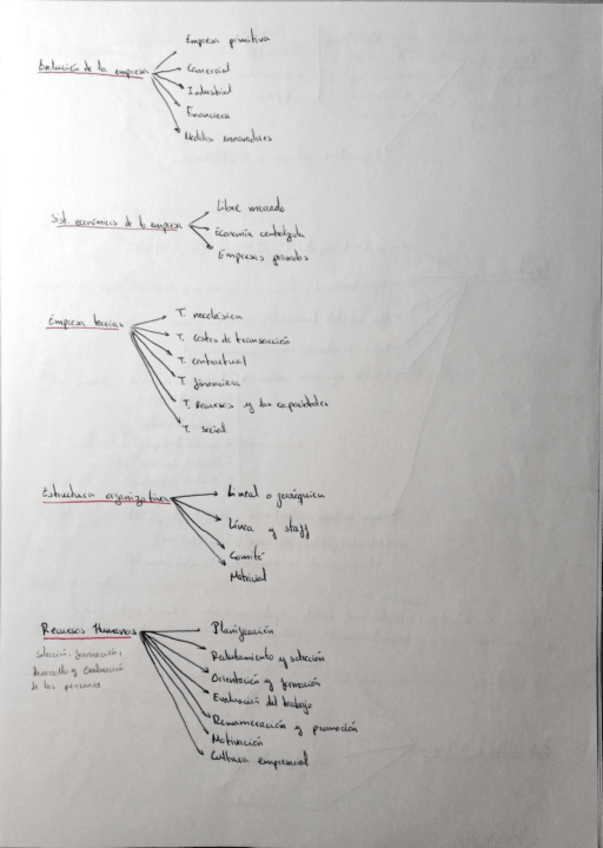 Empresa primitiva
Evolución de la empresa
Comercial
Industrial
Financiera
Modelos innovadores
Libre mercado
Sist. económicos de la empresa
Economía centralizada
Empresas privadas
T. neoclásica
Empresa teorías
T. costes de transacción
T. contractual
T. financiera
T. Recursos y las capacidades
T. social
Estructura organizativa
Lineal o jerárquica
Línea y staff
Comité
Matricial
Recursos Humanos
Planificación
selección, formación,
Reclutamiento y selección
desarrollo y evaluación
Orientación y formación
de las personas
Evaluación del trabajo
Remuneración y promoción
Motivación
Cultura empresarial